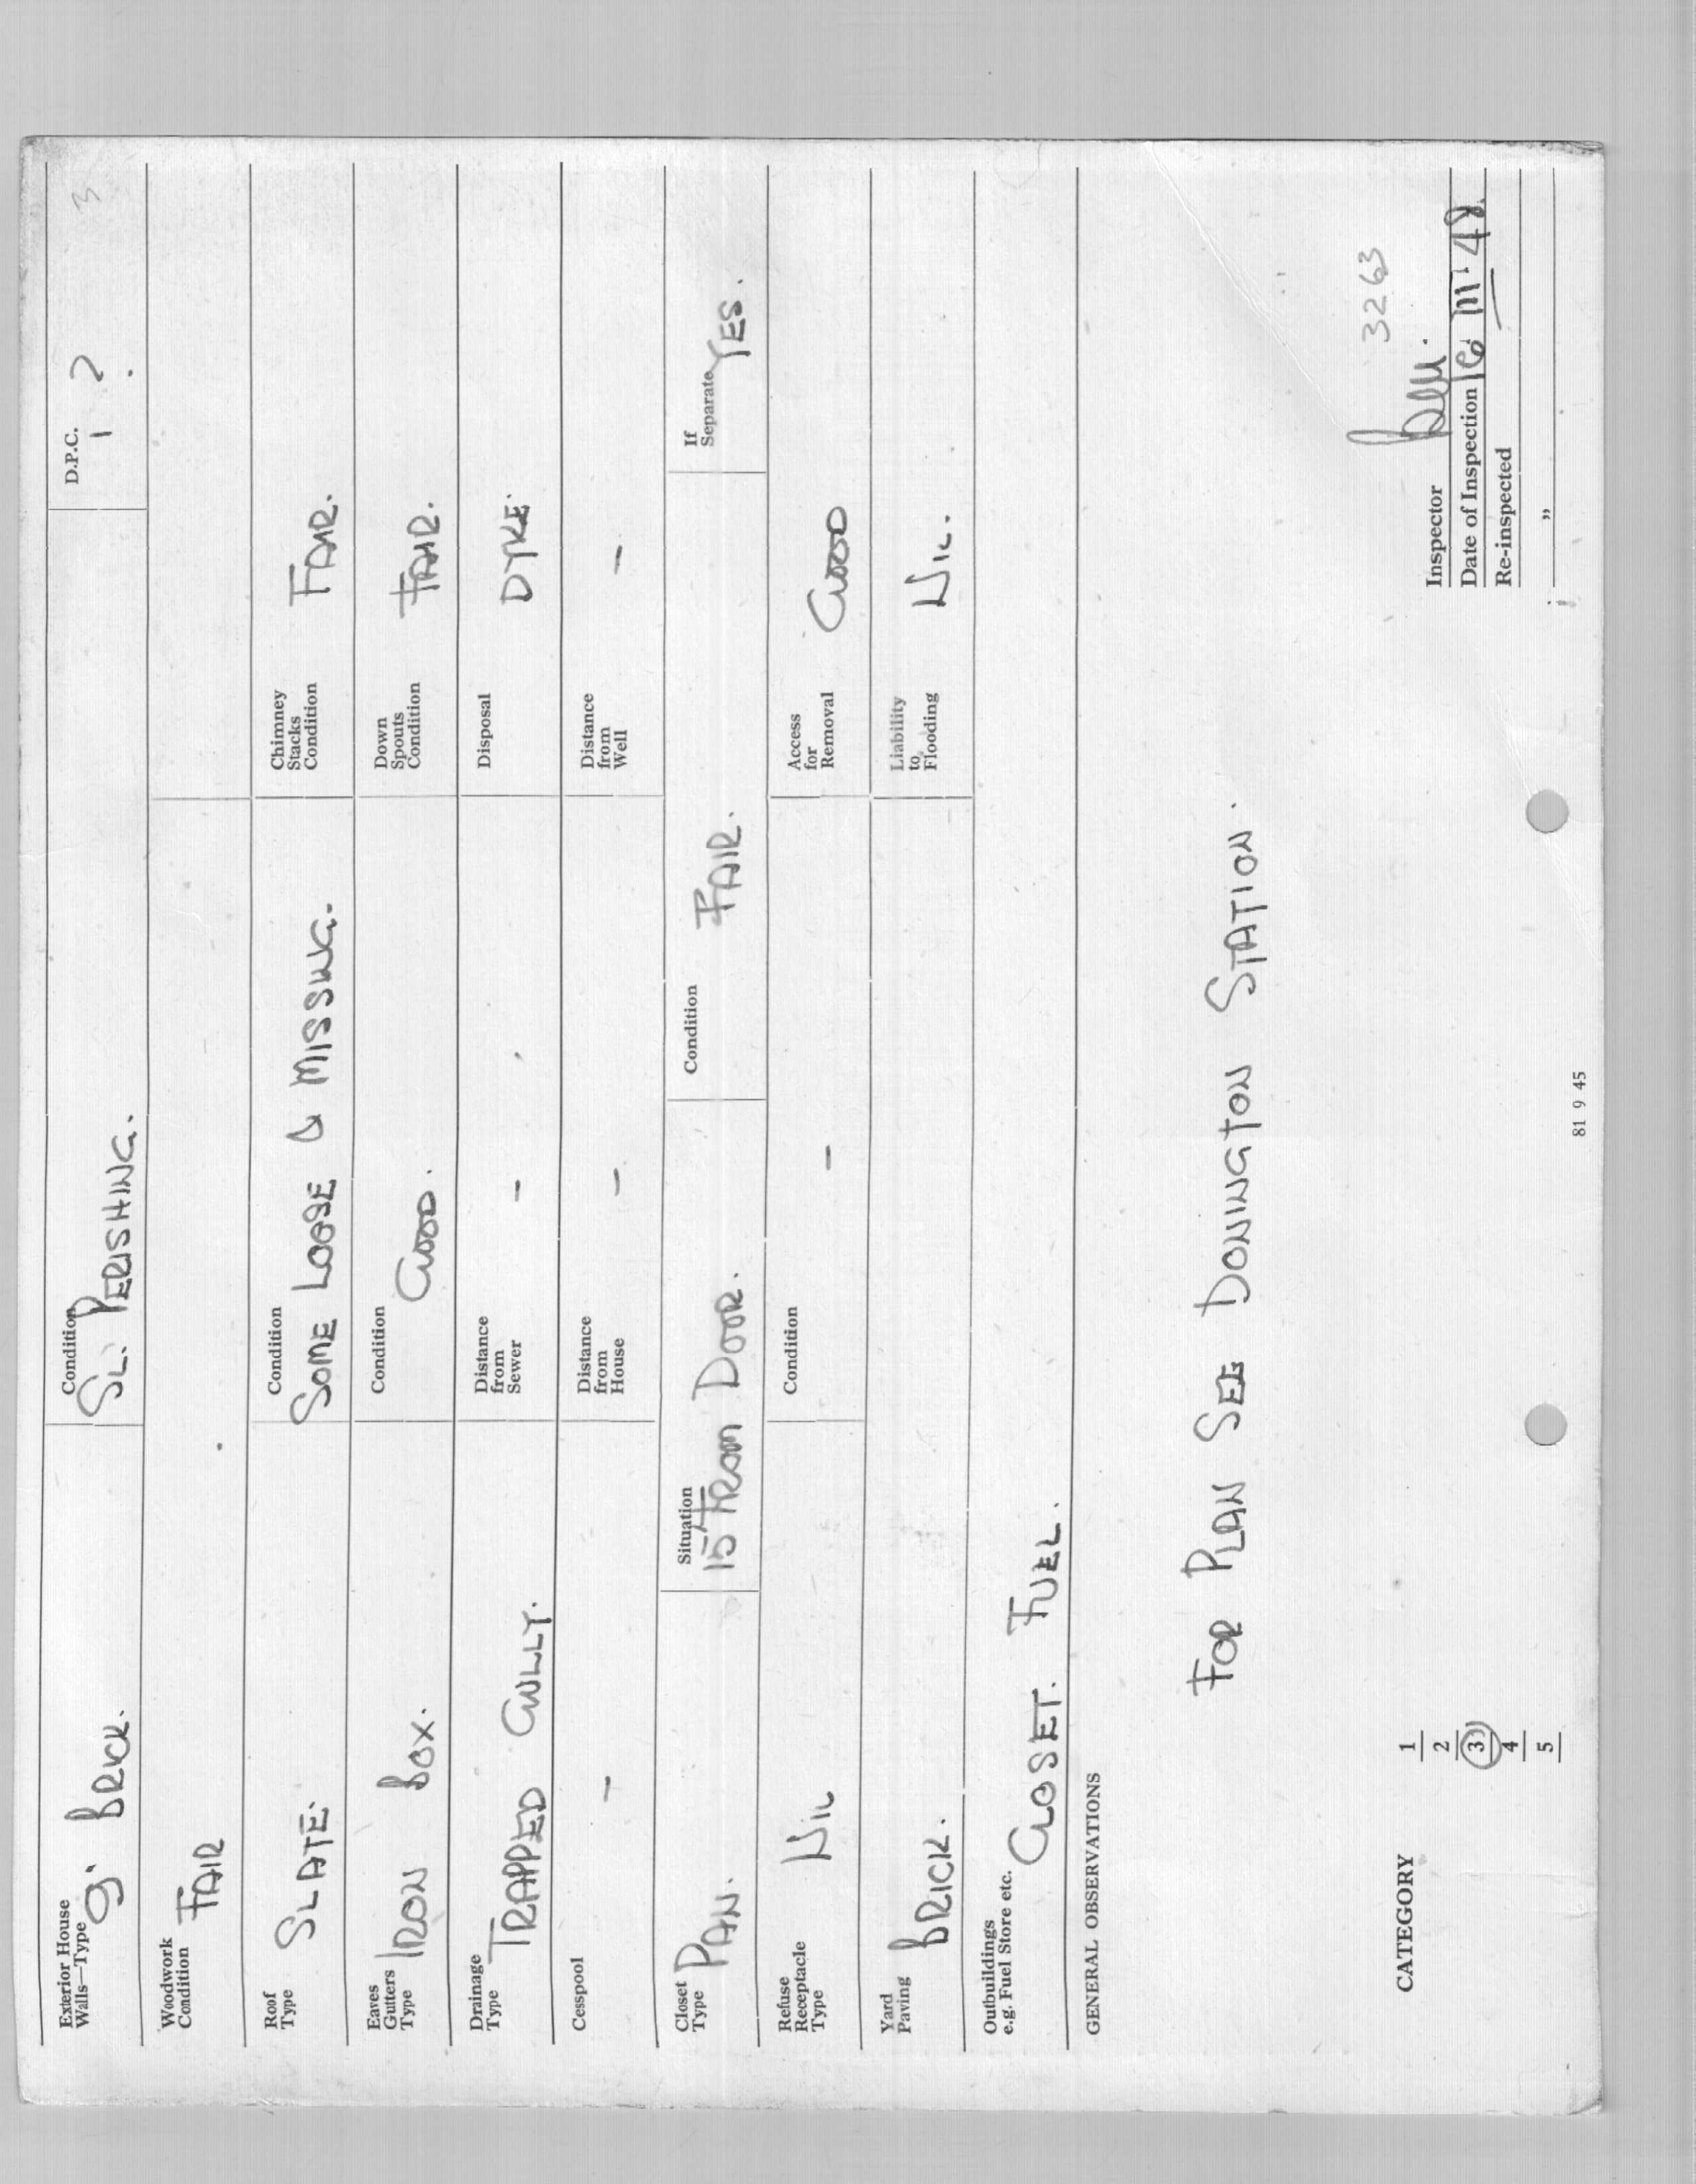 Exterior House Walls—Type 9. BRICK. Condition SL. PERISHING. D.P.C. ?
3
Woodwork Condition FAIR
Roof Type SLATE. Condition SOME LOOSE & MISSING. Chimney Stacks Condition FAIR.
Eaves Gutters Type IRON BOX. Condition GOOD. Down Spouts Condition FAIR.
Drainage Type TRAPPED GULLY. Distance from Sewer - Disposal DYKE.
Cesspool - Distance from House - Distance from Well -
Closet Type PAN. Situation 15 FROM DOOR. Condition FAIR. If Separate YES.
Refuse Receptacle Type NIL Condition - Access for Removal GOOD
Yard Paving BRICK. Liability to Flooding NIL.
Outbuildings e.g. Fuel Store etc. CLOSET. FUEL.
GENERAL OBSERVATIONS
FOR PLAN SEE DONINGTON STATION.
3263
CATEGORY 1
2
3
4
5
Inspector
Date of Inspection 16 III 48.
Re-inspected
"
81 9 45